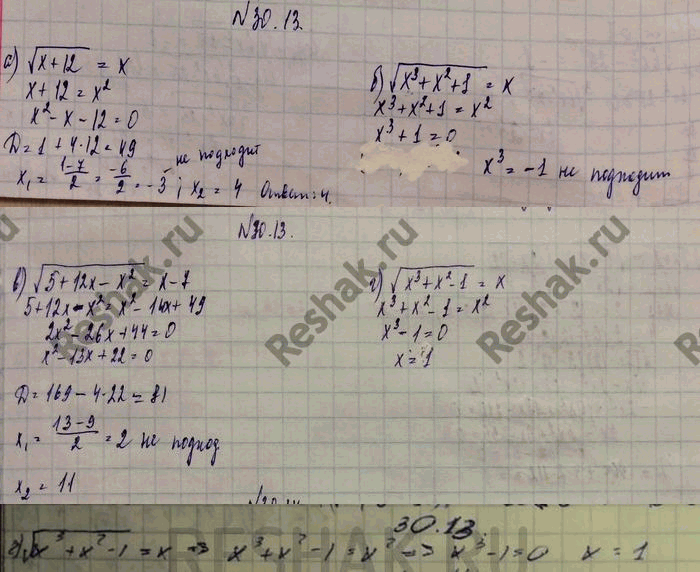 №30.13.
а) √(x+12) = x
x+12 = x²
x² - x - 12 = 0
D = 1 + 4·12 = 49
x₁ = (1-7)/2 = -6/2 = -3 - не подходит; x₂ = 4 Ответ: 4.
б) √(x³+x²+1) = x
x³+x²+1 = x²
x³+1 = 0
x³ = -1 не подходит
№30.13.
в) √(5+12x-x²) = x-7
5+12x-x² = x²-14x+49
2x²-26x+44=0
x²-13x+22=0
D = 169 - 4·22 = 81
x₁ = (13-9)/2 = 2 не подход
x₂ = 11
г) √(x³+x²-1) = x
x³+x²-1 = x²
x³-1=0
x = 1
30.13.
г) √(x³+x²-1) = x => x³+x²-1 = x² => x³-1=0 x = 1
Reshak.ru
Reshak.ru
Reshak.ru
RESHAK.RU